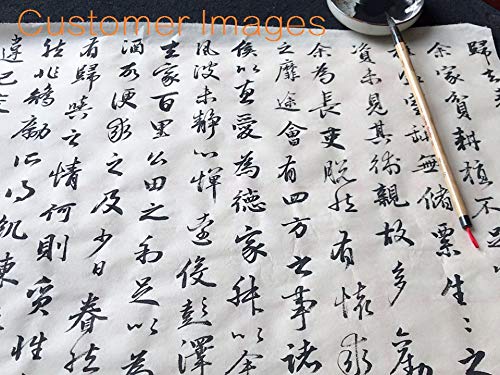 Customer Images
歸去
余家貧耕植不足
室缾無儲粟生〻之
資未見其術親故多勸
余為長吏脫然有懷求
之靡途會有四方之事諸
侯以惠愛為德家叔以余
風波未靜心憚遠役彭澤
去家百里公田之利足以為
酒故便求之及少日眷然
有歸歟之情何則質性
然非矯勵所得飢凍
違己交